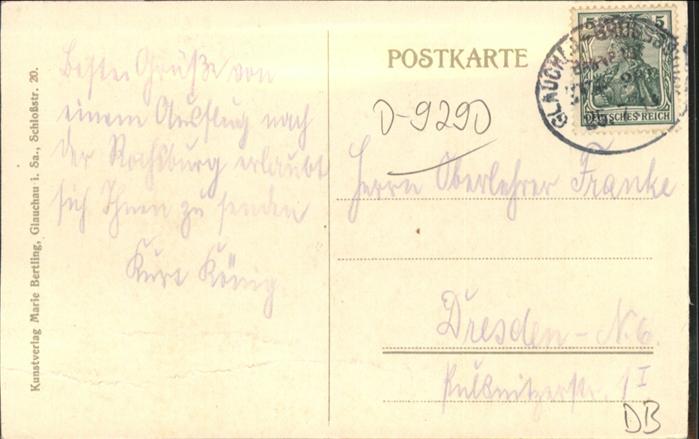 Beste Grüße von
einem Ausflug nach
der Rochsburg erlaubt
sich Ihnen zu senden
Kurt König.
Kunstverlag Marie Bertling, Glauchau i. Sa., Schloßstr. 20.
POSTKARTE
5 5
DEUTSCHES REICH
D-9290
Herrn Oberlehrer Franke
Dresden-N. 6.
Pulsnitzerstr. 1 I
DB